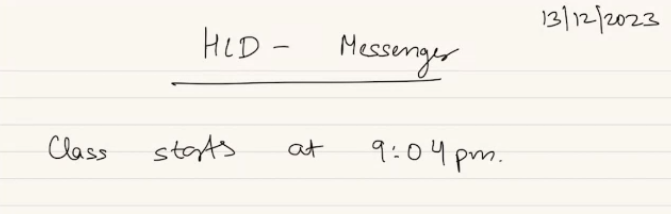 13/12/2023
HLD - Messenger
Class starts at 9:04 pm.